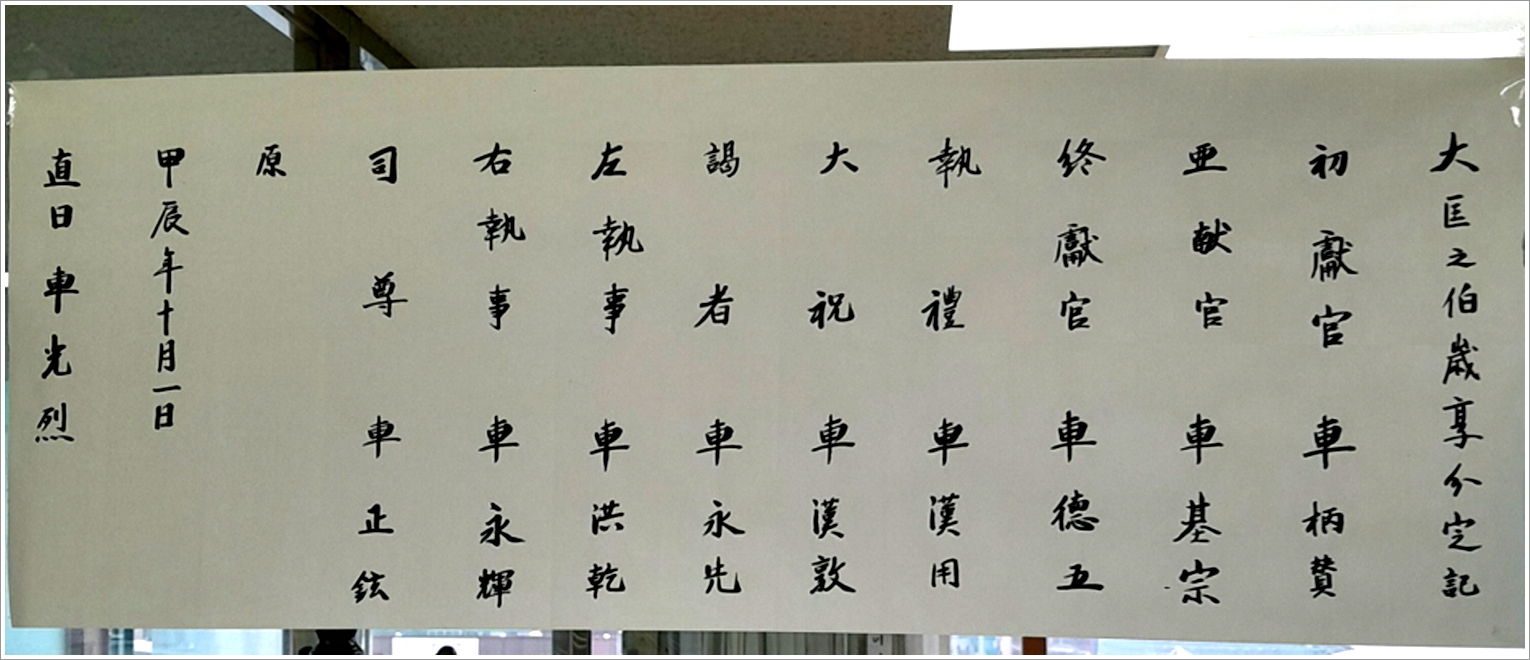 大匡之伯歲享分定記
初獻官 車柄贊
亜献官 車基宗
終獻官 車德五
執禮 車漢用
大祝 車漢敦
謁者 車永先
左執事 車洪乾
右執事 車永輝
司尊 車正鉉
原
甲辰年十月一日
直日 車光烈